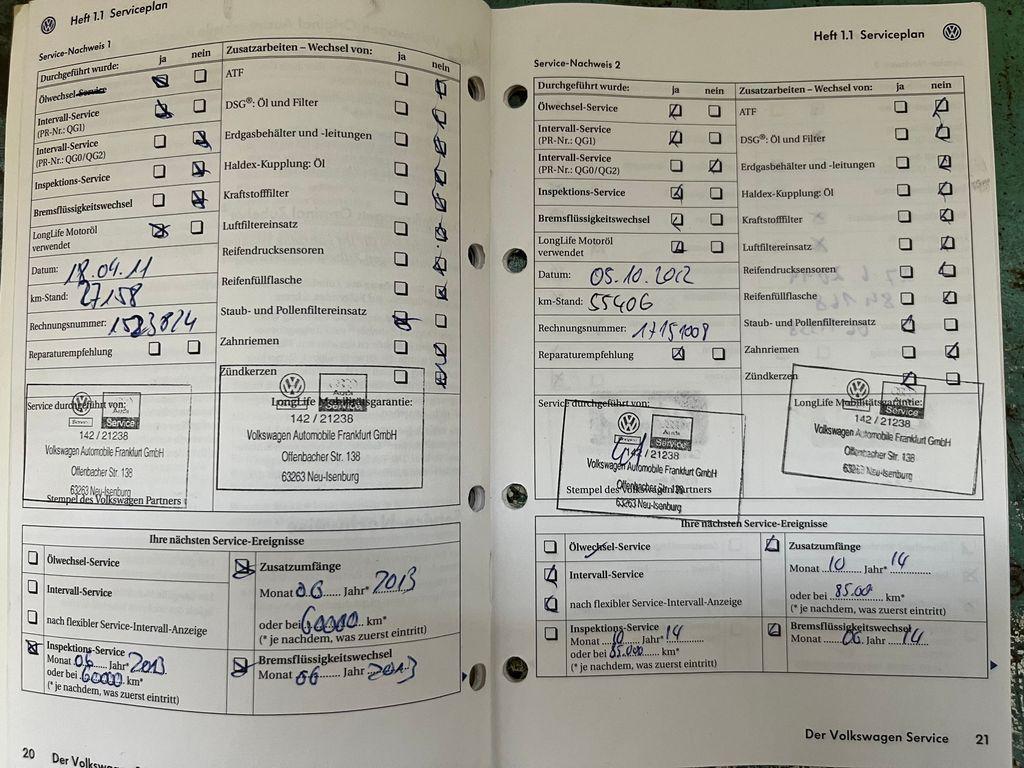 Heft 1.1 Serviceplan
Service-Nachweis 1
Durchgeführt wurde: ja nein
Ölwechsel-Service
Intervall-Service
(PR-Nr.: QG1)
Intervall-Service
(PR-Nr.: QG0/QG2)
Inspektions-Service
Bremsflüssigkeitswechsel
LongLife Motoröl
verwendet
Datum: 18.04.11
km-Stand: 27158
Rechnungsnummer: 1523824
Reparaturempfehlung
Zusatzarbeiten – Wechsel von: ja nein
ATF
DSG®: Öl und Filter
Erdgasbehälter und -leitungen
Haldex-Kupplung: Öl
Kraftstofffilter
Luftfiltereinsatz
Reifendrucksensoren
Reifenfüllflasche
Staub- und Pollenfiltereinsatz
Zahnriemen
Zündkerzen
Service durchgeführt von:
Service
142 / 21238
Volkswagen Automobile Frankfurt GmbH
Offenbacher Str. 138
63263 Neu-Isenburg
Stempel des Volkswagen Partners
LongLife Mobilitätsgarantie:
Audi
Service
142 / 21238
Volkswagen Automobile Frankfurt GmbH
Offenbacher Str. 138
63263 Neu-Isenburg
Ihre nächsten Service-Ereignisse
Ölwechsel-Service
Intervall-Service
nach flexibler Service-Intervall-Anzeige
Inspektions-Service
Monat 06 Jahr* 2013
oder bei 60000 km*
(* je nachdem, was zuerst eintritt)
Zusatzumfänge
Monat 06 Jahr* 2013
oder bei 60000 km*
(* je nachdem, was zuerst eintritt)
Bremsflüssigkeitswechsel
Monat 06 Jahr 2013
20 Der Volksw
Heft 1.1 Serviceplan
Service-Nachweis 2
Durchgeführt wurde: ja nein
Ölwechsel-Service
Intervall-Service
(PR-Nr.: QG1)
Intervall-Service
(PR-Nr.: QG0/QG2)
Inspektions-Service
Bremsflüssigkeitswechsel
LongLife Motoröl
verwendet
Datum: 05.10.2012
km-Stand: 55406
Rechnungsnummer: 17151009
Reparaturempfehlung
Zusatzarbeiten – Wechsel von: ja nein
ATF
DSG®: Öl und Filter
Erdgasbehälter und -leitungen
Haldex-Kupplung: Öl
Kraftstofffilter
Luftfiltereinsatz
Reifendrucksensoren
Reifenfüllflasche
Staub- und Pollenfiltereinsatz
Zahnriemen
Zündkerzen
Service durchgeführt von:
Audi
Service
/ 21238
Volkswagen Automobile Frankfurt GmbH
Offenbacher Str. 138
63263 Neu-Isenburg
Stempel des Volkswagen Partners
LongLife Mobilitätsgarantie:
Service
142 / 21238
Volkswagen Automobile Frankfurt GmbH
Offenbacher Str. 138
63263 Neu-Isenburg
Ihre nächsten Service-Ereignisse
Ölwechsel-Service
Intervall-Service
nach flexibler Service-Intervall-Anzeige
Inspektions-Service
Monat 10 Jahr* 14
oder bei 85.000 km*
(* je nachdem, was zuerst eintritt)
Zusatzumfänge
Monat 10 Jahr* 14
oder bei km*
(* je nachdem, was zuerst eintritt)
Bremsflüssigkeitswechsel
Monat 06 Jahr 14
Der Volkswagen Service 21